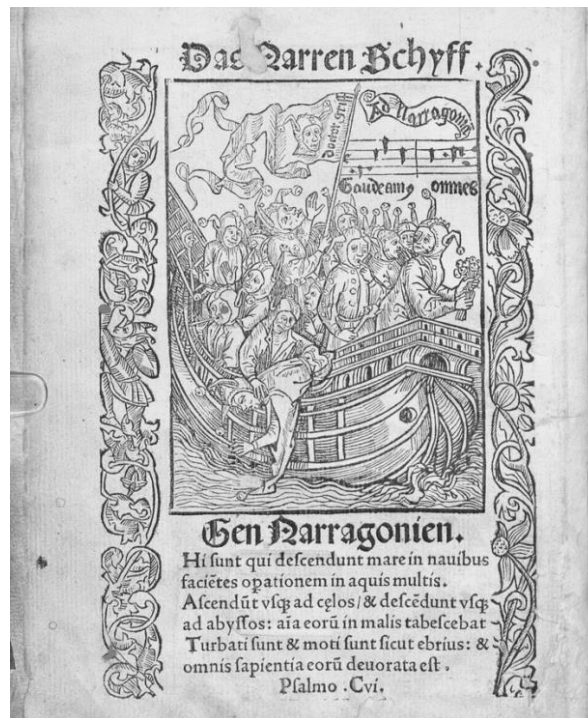 Das Narren Schyff.
Ad Narragoniā
doctor griff
Gaudeamꝰ omnes
Gen Narragonien.
Hi sunt qui descendunt mare in nauibus
faciētes opationem in aquis multis.
Ascendūt vsqꝫ ad cęlos/ & descēdunt vsqꝫ
ad abyssos: aīa eorū in malis tabescebat
Turbati sunt & moti sunt sicut ebrius: &
omnis sapientia eorū deuorata est.
Psalmo .Cvi.